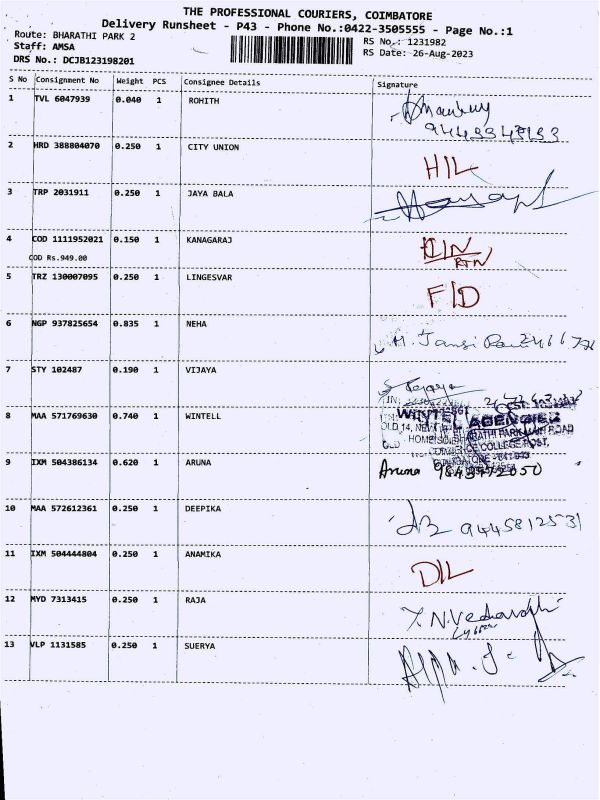 THE PROFESSIONAL COURIERS, COIMBATORE
Delivery Runsheet - P43 - Phone No.:0422-3505555 - Page No.:1
Route: BHARATHI PARK 2
RS No.: 1231982
Staff: AMSA
RS Date: 26-Aug-2023
DRS No.: DCJB123198201
S No Consignment No Weight PCS Consignee Details Signature
1 TVL 6047939 0.040 1 ROHITH
2 HRD 388804070 0.250 1 CITY UNION H/L
3 TRP 2031911 0.250 1 JAYA BALA
4 COD 1111952021 0.150 1 KANAGARAJ
COD Rs.949.00 RTN
5 TRZ 130007095 0.250 1 LINGESVAR F/D
6 NGP 937825654 0.835 1 NEHA
7 STY 102487 0.190 1 VIJAYA
8 MAA 571769630 0.740 1 WINTELL WINTEL AGENCIES
9 IXM 504386134 0.620 1 ARUNA Aruna
10 MAA 572612361 0.250 1 DEEPIKA 9445812531
11 IXM 504444804 0.250 1 ANAMIKA D/L
12 MYD 7313415 0.250 1 RAJA
13 VLP 1131585 0.250 1 SUERYA